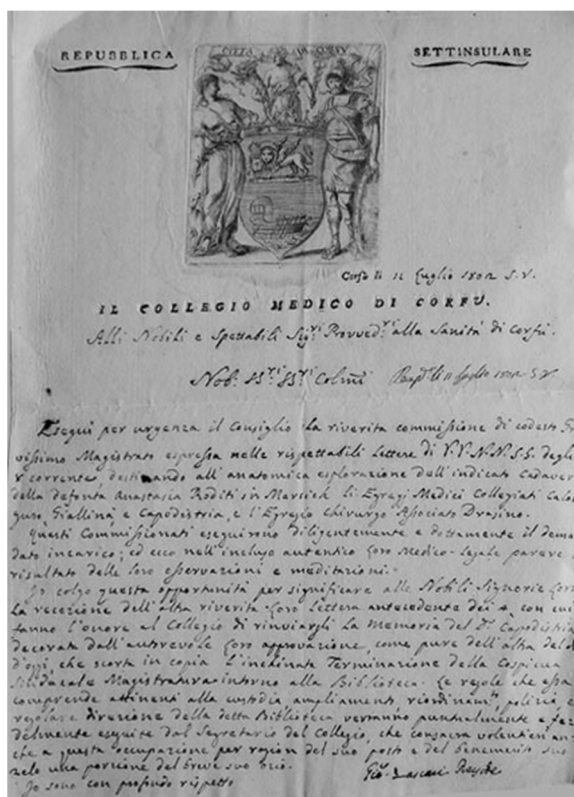 REPUBBLICA SETTINSULARE
CITTA DI CORFU
Corfù li 11 Luglio 1802 S.V.
IL COLLEGIO MEDICO DI CORFU.
Alli Nobili e Spettabili Sig.ri Provved.ri alla Sanità di Corfù.
Nob. SS.ri SS.ri Colmi li 11 Luglio 1802 S.V.
Eseguì per urgenza il Consiglio la riverita commissione di codesto
vissimo Magistrato espressa nelle rispettabili Lettere di V.V.N.N.S.S. degli
corrente, destinando all'anatomica esplorazione dell'indicato Cadaver
della defonta Anastasia Roditi sin Marsich li Egregi Medici Collegiati Calo
guro, Giallinà e Capodistria, e l'Egregio Chirurgo Associato Drasino.
Questi Commissionati eseguirono diligentemente e dottamente il deman
dato incarico; ed ecco nell'incluso autentico Loro Medico-Legale parere il
risultato delle loro osservazioni e meditazioni.
Io colgo questa opportunità per significare alle Nobili Signorie Loro
La recezione dell'altra riverita Loro Lettera antecedente dei con cui
fanno l'onore al Collegio di rinviargli La Memoria del Dr. Capodistria
decorata dall'autorevole Loro approvazione, come pure dell'altra del dì
d'oggi, che scorta in copia l'inchinata Terminazione della Cospicua
Sindacale Magistratura intorno alla Biblioteca. Le regole che essa
comprende attinenti alla custodia ampliamento, riordinam.to, polizia, e
regolare direzione della detta Biblioteca verranno puntualmente e fe
delmente eseguite dal Segretario del Collegio, che consacra volentieri an
che a questa occupazione per ragion del suo posto e del benemerito suo
zelo una porzione del breve suo ozio.
Io sono con profondo rispetto